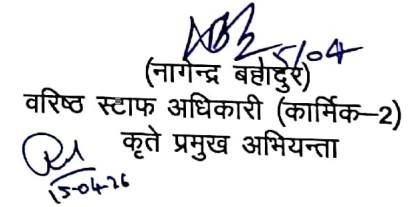 15/04
(नागेन्द्र बहादुर)
वरिष्ठ स्टाफ अधिकारी (कार्मिक–2)
कृते प्रमुख अभियन्ता
15-04-26